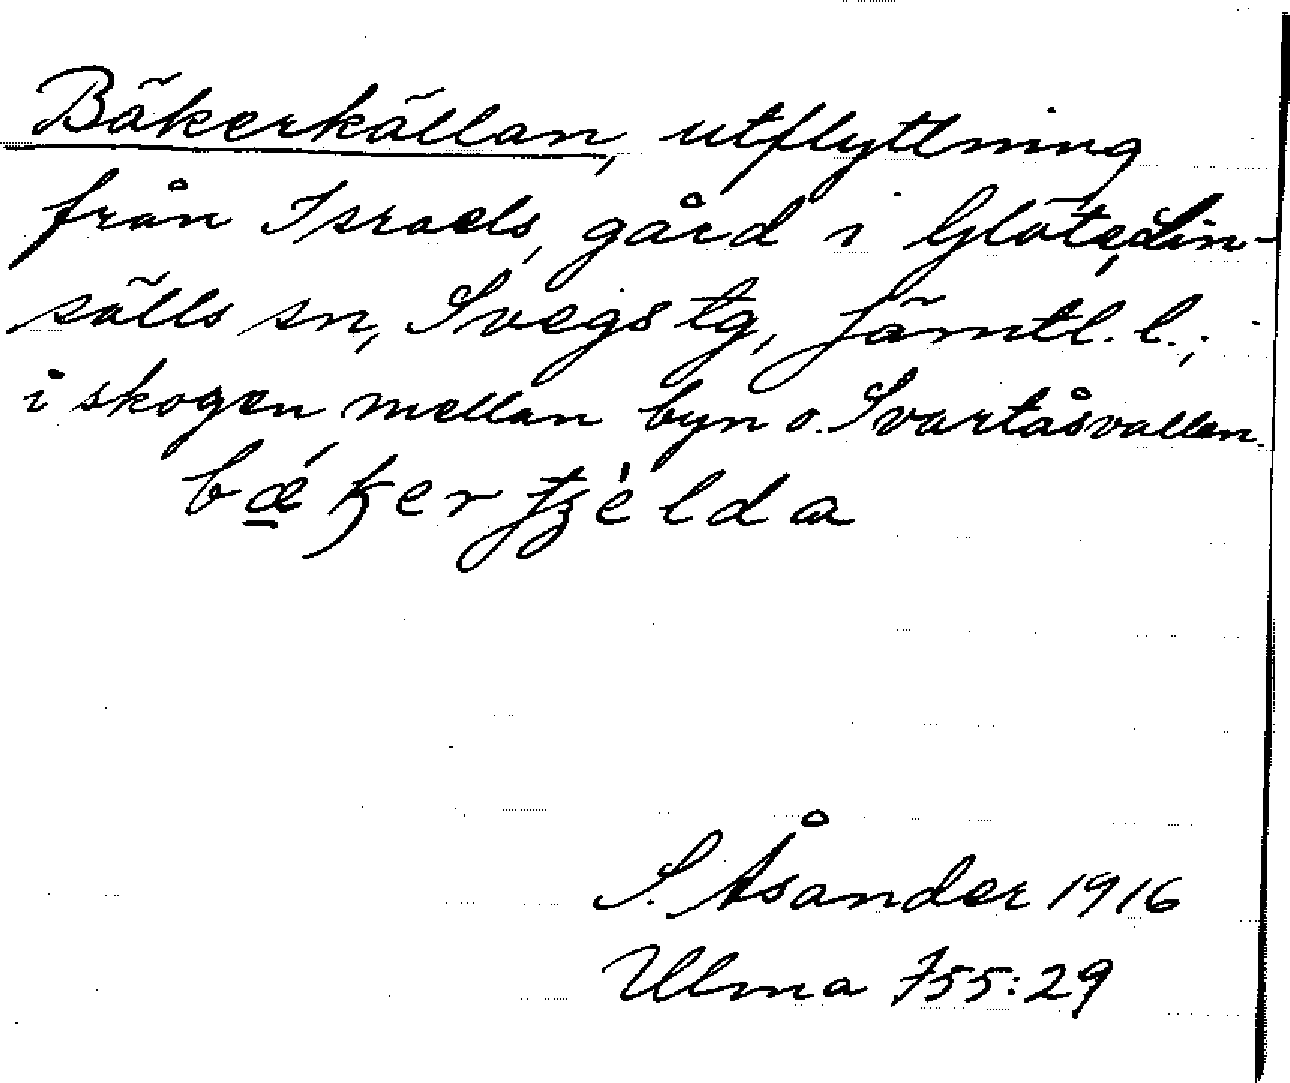 Bäkerkällan, utflyttning
från Israels, gård i Glöte, Lin-
sälls sn, Svegs tg, Jämtl. l.;
i skogen mellan byn o. Svartåsvallen.
S. Åsander 1916
Ulma 755:29